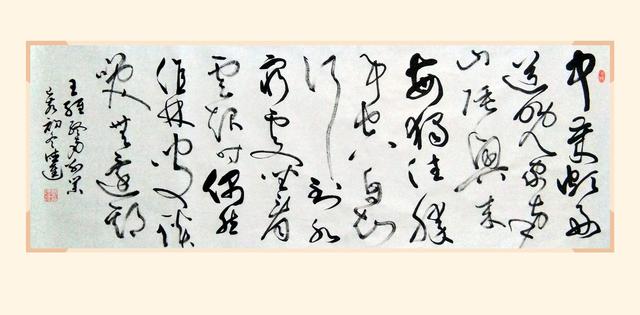 中歲頗好
道晚家南
山陲興来
每獨往勝
事空自知
行到水
窮處坐看
雲起時偶然
值林叟談
笑無還期
王維終南别業